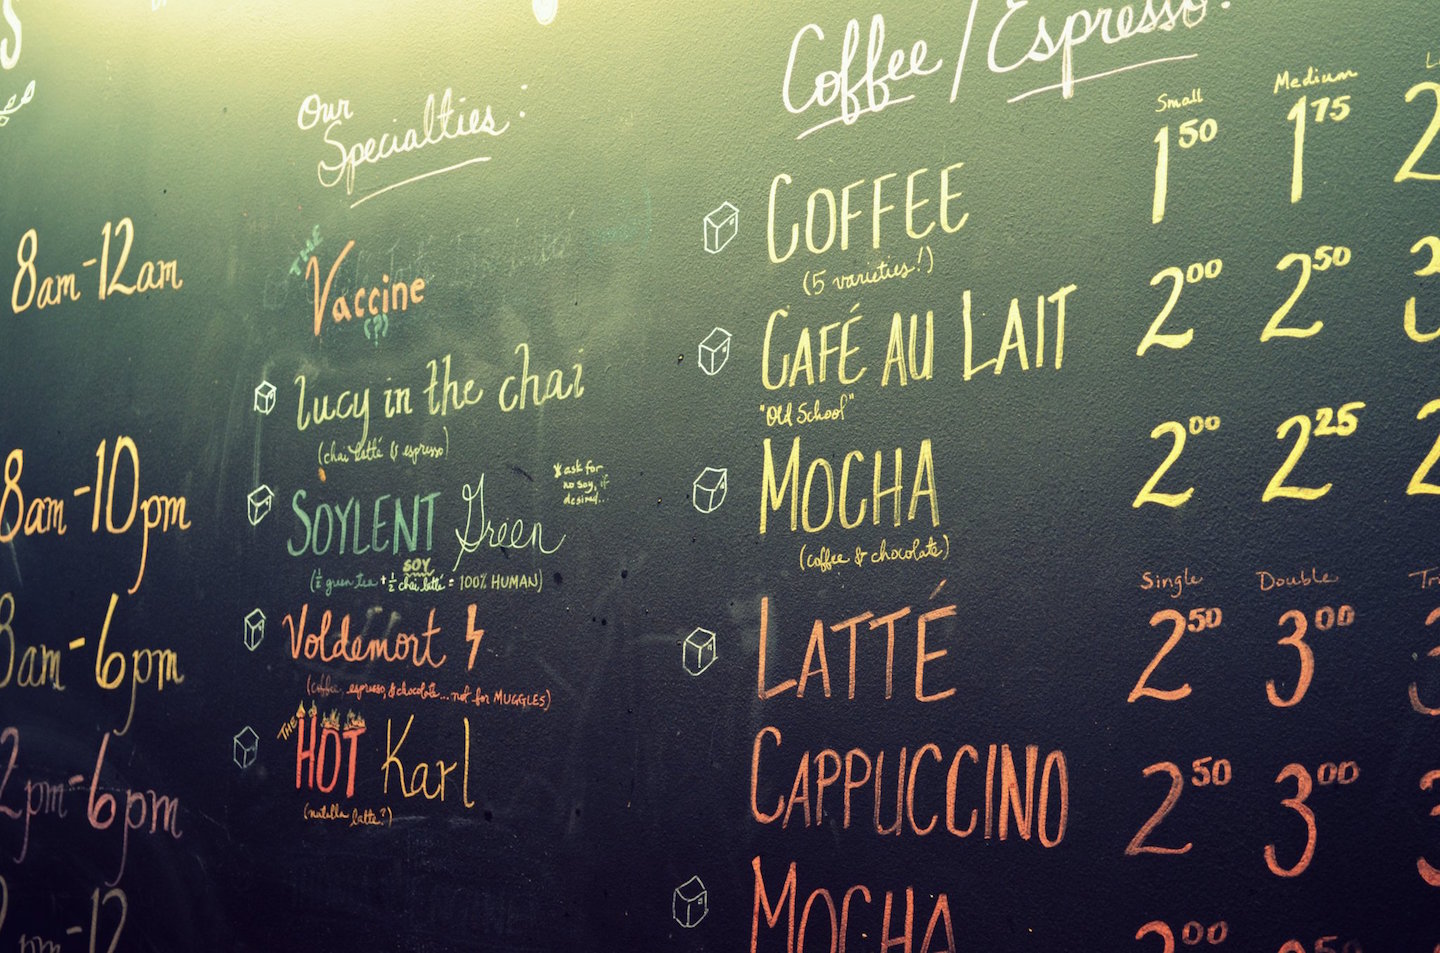 8am-12am
8am-10pm
8am-6pm
2pm-6pm
-12
Our
Specialties:
THE
Vaccine
(?)
lucy in the chai
(chai latté & espresso)
SOYLENT Green
*ask for
no soy, if
desired...
SOY
(½ green tea + ½ chai latté = 100% HUMAN)
Voldemort
(coffee, espresso, & chocolate... not for MUGGLES)
THE HOT Karl
(nutella latte?)
Coffee / Espresso:
Small Medium
COFFEE 1 50 1 75 2
(5 varieties!)
CAFÉ AU LAIT 2 00 2 50 3
"Old School"
MOCHA 2 00 2 25 2
(coffee & chocolate)
Single Double
LATTÉ 2 50 3 00 3
CAPPUCCINO 2 50 3 00 3
MOCHA 3 00 50